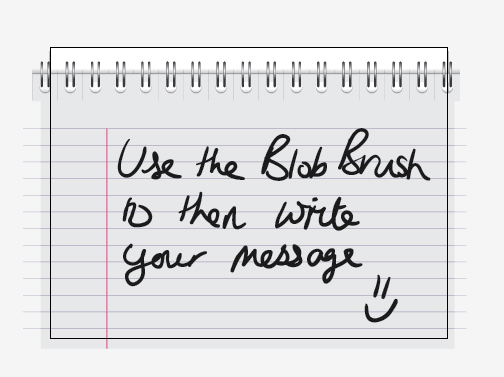 Use the Blob Brush
to then write
your message
=)